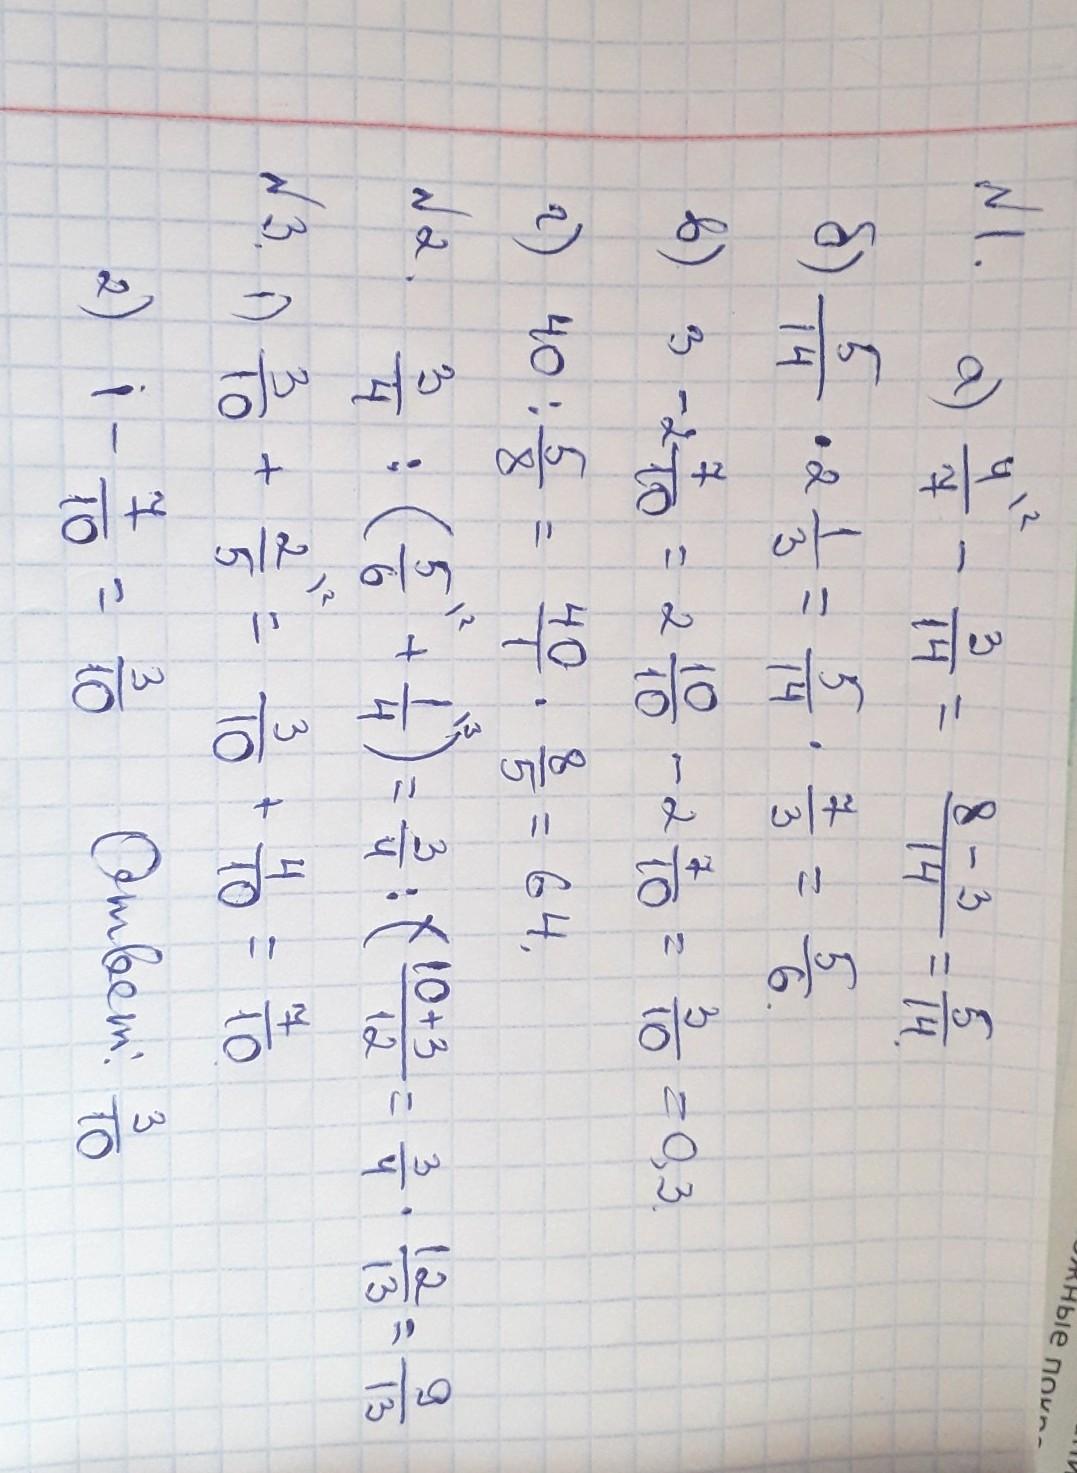 №1. а) 4/7 \2 - 3/14 = 8-3/14 = 5/14.
б) 5/14 · 2 1/3 = 5/14 · 7/3 = 5/6.
в) 3 - 2 7/10 = 2 10/10 - 2 7/10 = 3/10 = 0,3.
г) 40 : 5/8 = 40/1 · 8/5 = 64.
№2. 3/4 : (5/6 \2 + 1/4 \3) = 3/4 : (10+3/12 = 3/4 · 12/13 = 9/13
№3. 1) 3/10 + 2/5 \2 = 3/10 + 4/10 = 7/10.
2) 1 - 7/10 = 3/10 Ответ: 3/10